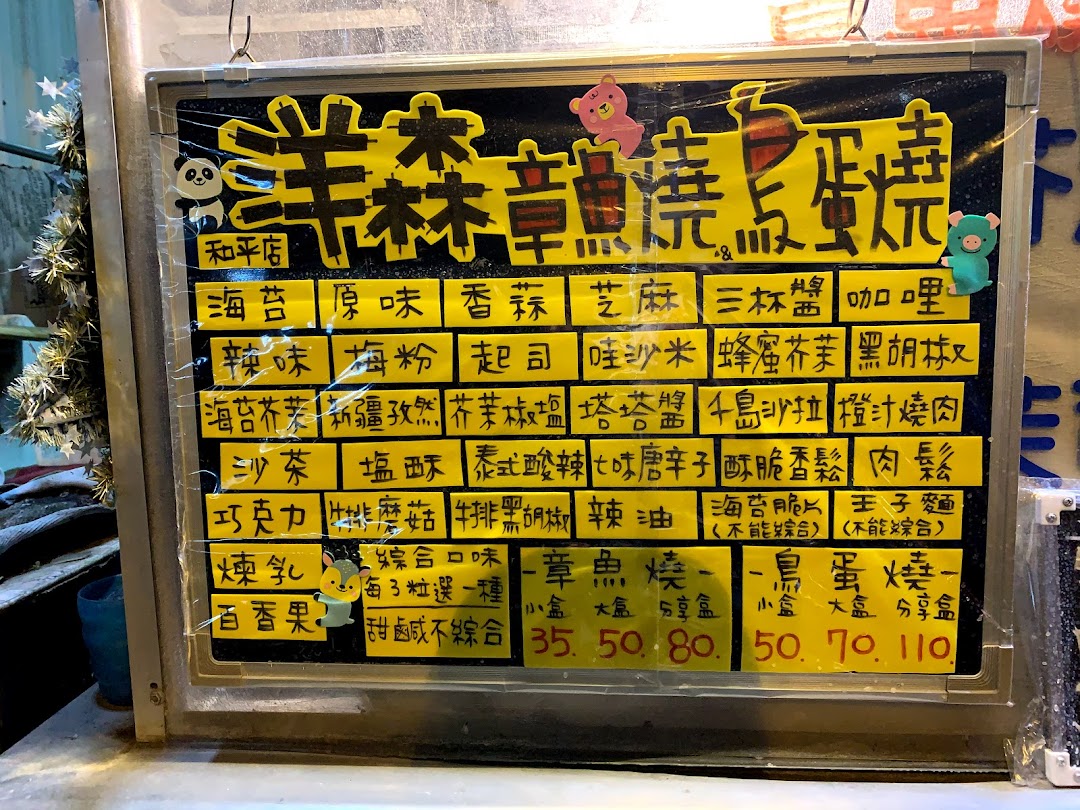 洋森章魚燒&鳥蛋燒
和平店
海苔 原味 香蒜 芝麻 三杯醬 咖哩
辣味 梅粉 起司 哇沙米 蜂蜜芥茉 黑胡椒
海苔芥茉 新疆孜然 芥茉椒塩 塔塔醬 千島沙拉 橙汁燒肉
沙茶 塩酥 泰式酸辣 七味唐辛子 酥脆香鬆 肉鬆
巧克力 牛排磨菇 牛排黑胡椒 辣油 海苔脆片(不能綜合) 王子麵(不能綜合)
煉乳
百香果
綜合口味
每3粒選一種
甜鹹不綜合
-章魚燒-
小盒 大盒 分享盒
35. 50. 80.
-鳥蛋燒-
小盒 大盒 分享盒
50. 70. 110.